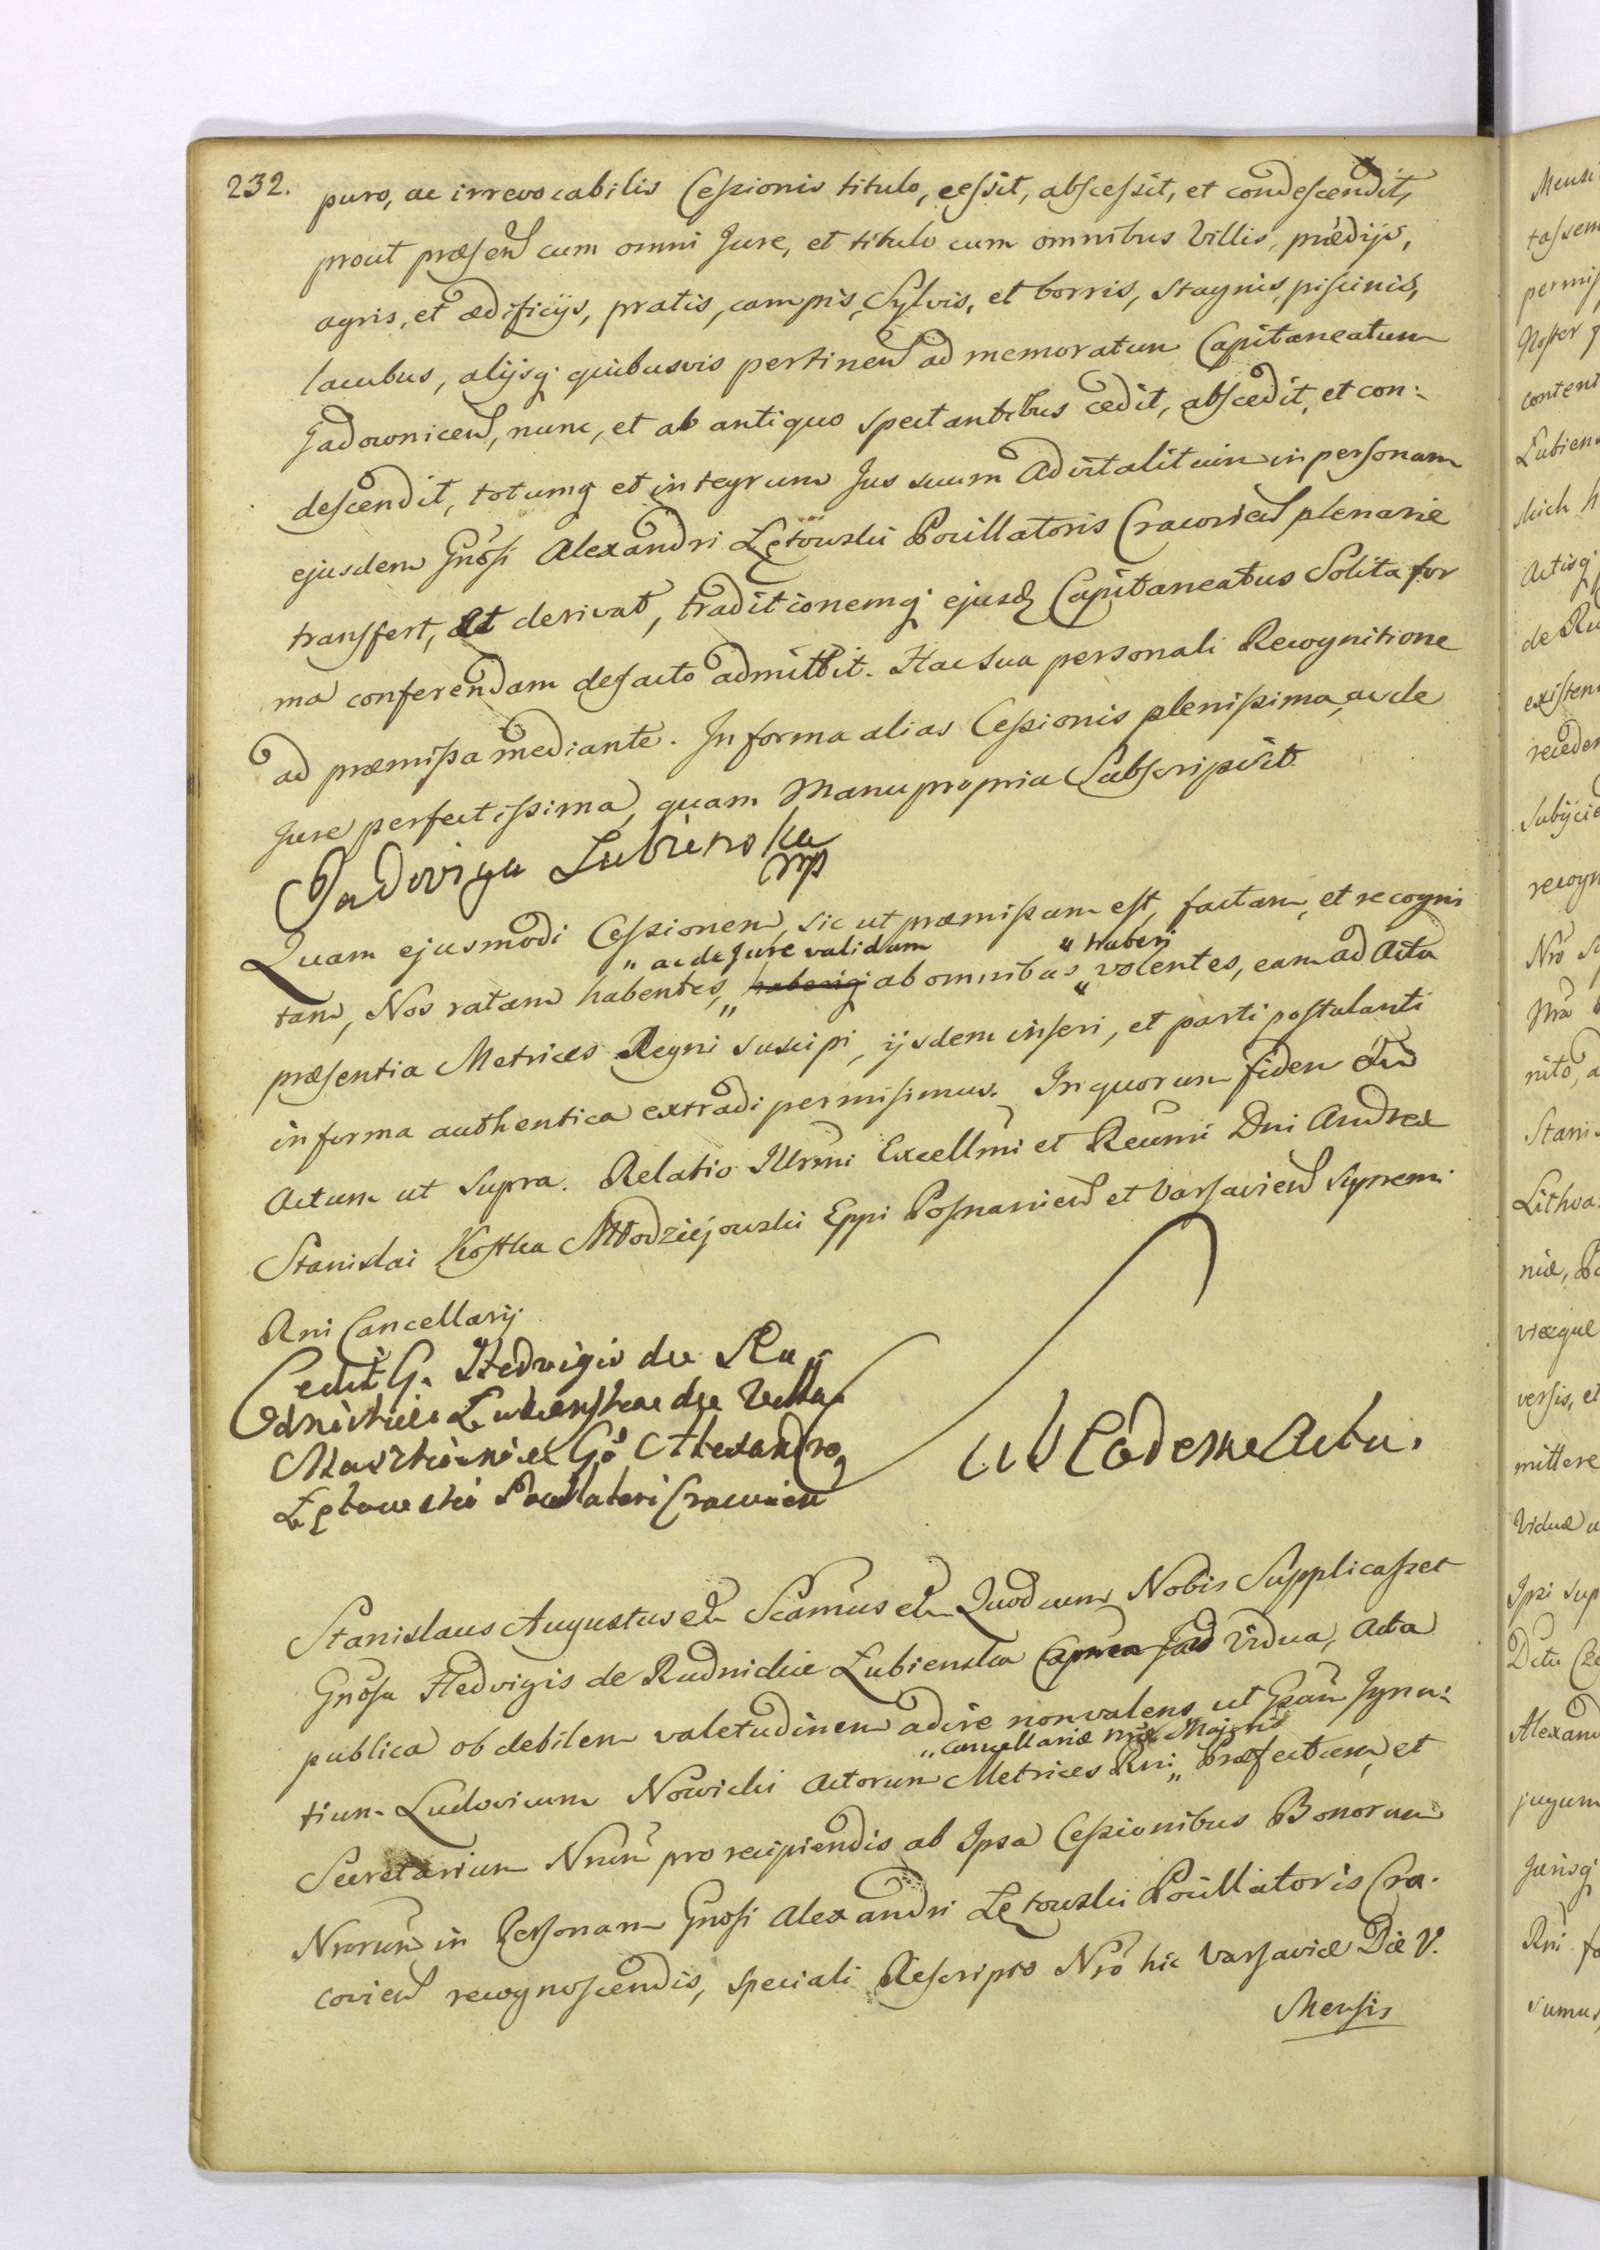 232. puro, ac irrevocabilis Cessionis titulo, cessit, abscessit, et condescendit,
prout præsen cum omni Jure, et titulo cum omnibus Villis, prædijs,
agris, et ædificijs, pratis, campis, Sylvis, et borris, stagnis, piscinis,
lacubus, alijsq; quibusvis pertinen ad memoratum Capitaneatum
Jadownicen, nunc, et ab antiquo spectantibus cedit, abscedit, et con:
descendit, totumq et integrum Jus suum Advitalitium in personam
ejusdem Gnosi Alexandri Łętowski Pocillatoris Cracovien plenarie
transfert, et derivat, traditionemq; ejusd Capitaneatus Solita for
ma conferendam defacto admittit. Hac sua personali Recognitione
ad præmissa mediante. In forma alias Cessionis plenissima, ac de
Jure perfectissima, quam Manu propria Subscripsit.
Jadwiga Lubienska
mp
Quam ejusmodi Cessionem, sic ut præmissum est, factam, et recogni
" ac de Jure validam " haberi
tam, Nos ratam habentes, " haberiq; ab omnibus " volentes, eam ad Acta
præsentia Metrices Regni suscipi, ijsdem inseri, et parti postulanti
in forma authentica extradi permisimus. In quorum fidem etc
Actum ut supra. Relatio Illrmi Excellmi et Revmi Dni Andreæ
Stanislai Kostka Młodziejowski Eppi Posnanien et Varsavien Supremi
Rni Cancellarij
Cessit G. Hedvigis de Ru
dnickie Lubienska de
Alexandro
Łętowski Pocillatori Cracovien
Eadem Acta.
Stanislaus Augustus etc Scamus etc Quod cum Nobis Supplicasset
Gnosa Hedvigis de Rudnickie Łubienska Vidua, Acta
publica ob debilem valetudinem adire non valens ut Gsum Igna:
" Cancellariæ Majoris
tium Ludovicum Nowicki Actorum Metrices Rni " Præfectum, et
Secretarium Nrum pro recipiendis ab Ipsa Cessionibus Bonorum
Nrorum in Personam Gnosi Alexandri Łętowski Pocillatoris Cra:
covien recognoscendis, speciali Rescripto Nro hic Varsaviæ Die V.
Mensis